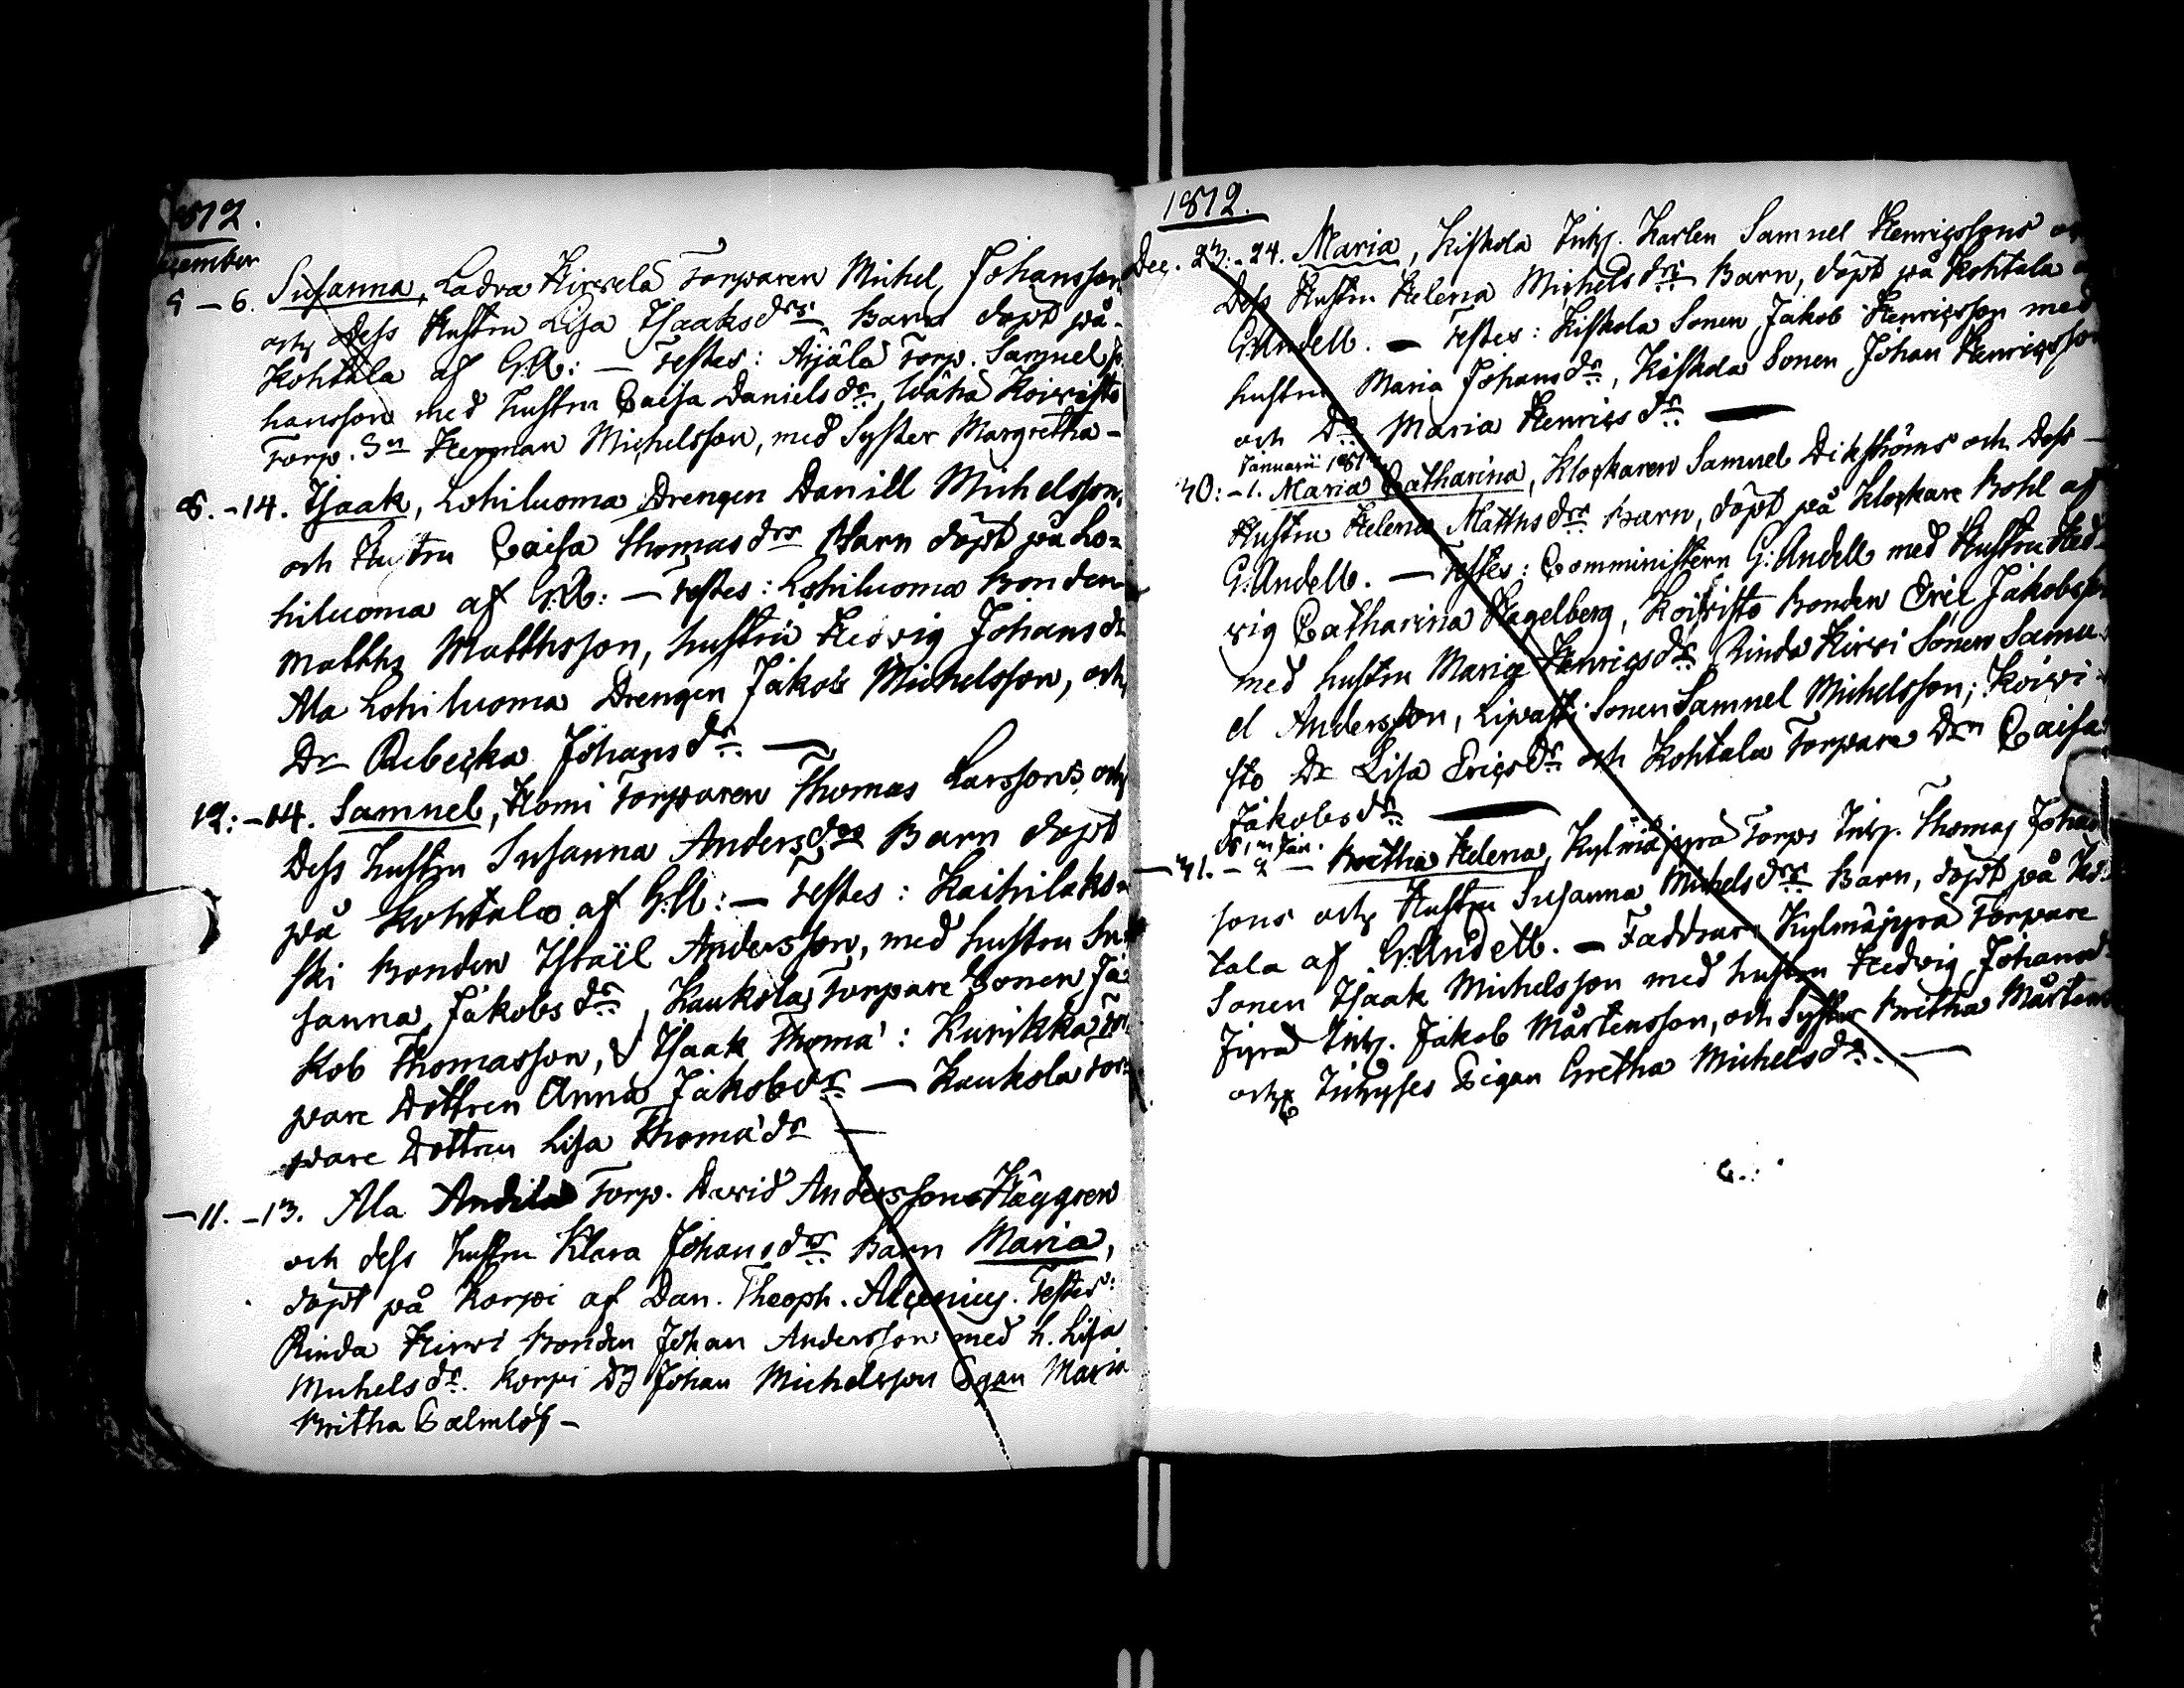 1812.
cember
5 - 6. Susanna, Ladva Hirvela Torparen Michel Johansson
och Dess Hustru Lisa Isaaksdrs Barn döpt på
Kohtala af G.A: — Testes: Äijälä Torp. Samuel Jo
hansson med hustru Caisa Daniels dr, Wähä Koivisto
Torp. Sn Herman Michelsson, med Syster Margretha -
8. - 14. Isaak, Lohiluoma Drengen Daniel Michelsson,
och Hustru Caisa Thomas drs Barn döpt på Lo=
hiluoma af G.A: — Testes: Lohiluoma Bonden
Matths Matthsson, hustru Hedvig Johans dr
Ala Lohiluoma Drengen Jakob Michelsson, och
Dr Rebecka Johans dr —
12: - 14. Samuel, Homi Torparen Thomas Larssons och
Dess hustru Susanna Anders drs Barn döpt
på Kohtala af G.A: — Testes: Kaihilaks=
ski Bonden Israël Andersson, med hustru Su
sanna Jakobs dr, Kaukola Torpare Sonen Ja
kob Thomasson, & Isaak Thoma': Kurikka Tor
pare Dottren Anna Jakobs dr — Kaukola Tor=
pare Dottren Lisa Thoma' dr —
— 11. - 13. Ala Andila Torp. David Anderssons Häggren
och dess hustru Klara Johans drs Barn Maria,
döpt på Korpi af Dan. Theoph. Alcenius. Testes:
Rinda Hirvi Bonden Johan Andersson med h. Lisa
Michels dr. Korpi Dg Johan Michelsson Pigan Maria
Britha Palmlöf -
1812.
Dec. 23: - 24. Maria, Kiskola Inhs. Karlen Samuel Henricssons och
Dess Hustru Helena Michels drs Barn, döpt på Kohtala af
G. Andell. — Testes: Kiskola Sonen Jakob Henricsson med
hustru Maria Johans dr, Kiskola Sonen Johan Henricsson
och Dr Maria Henrics dr —
Januarii 1813
30: - 1. Maria Catharina, Klockaren Samuel Dikströms och Dess -
Hustru Helena Matths drs Barn, döpt på Klockare Bohl af
G: Andell. — Testes: Comministern G: Andell med Hustru Hed-
vig Catharina Hagelberg, Koivisto Bonden Eric Jakobsson
med hustru Maria Henrics dr Rinda Hirvi Sonen Samu
el Andersson, Lipasti Sonen Samuel Michelsson; Koivi=
sto Dr Lisa Erics dr och Kohtala Torpare Drn Caisa
Jakobs dr —
Jan.
— 31. - 2 — Bretha Helena, Kylmäjyrä Torps Inhs. Thomas Johans
sons och Hustru Susanna Michels drs Barn, döpt på Koh
tala af G: Andell. — Faddrar: Kylmäjyrä Torpare
Sonen Isaak Michelsson med hustru Hedvig Johansd
Jyrä Inhs. Jakob Mårtensson, och Syster Britha Mårtens
och Inhyses Pigan Gretha Michels dr. —